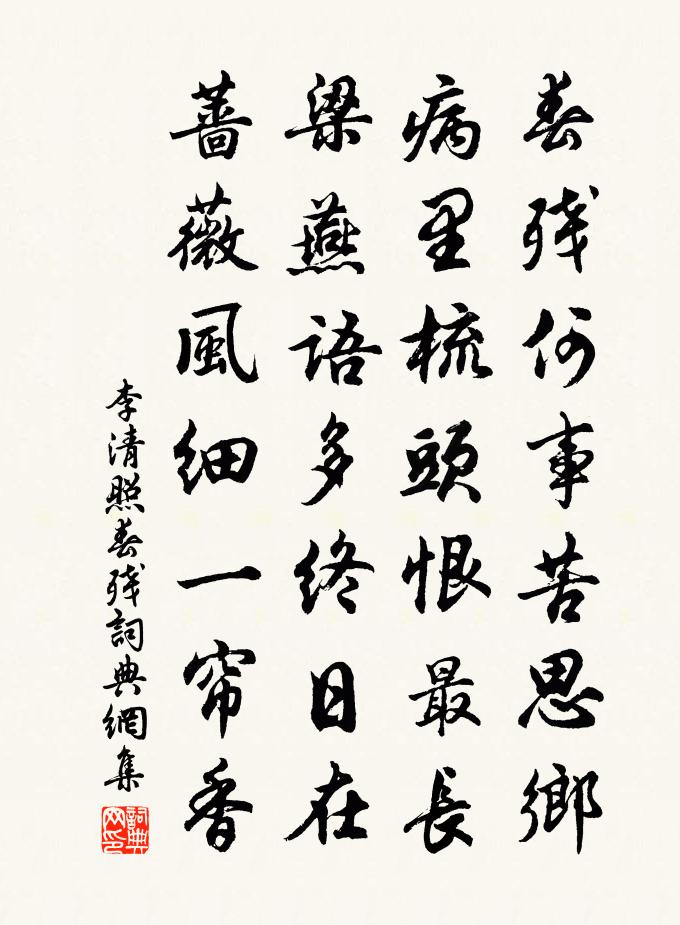 春残何事苦思鄉
病里梳頭恨最長
梁燕語多終日在
薔薇風細一帘香
李清照春残詞典網集
詞典网印